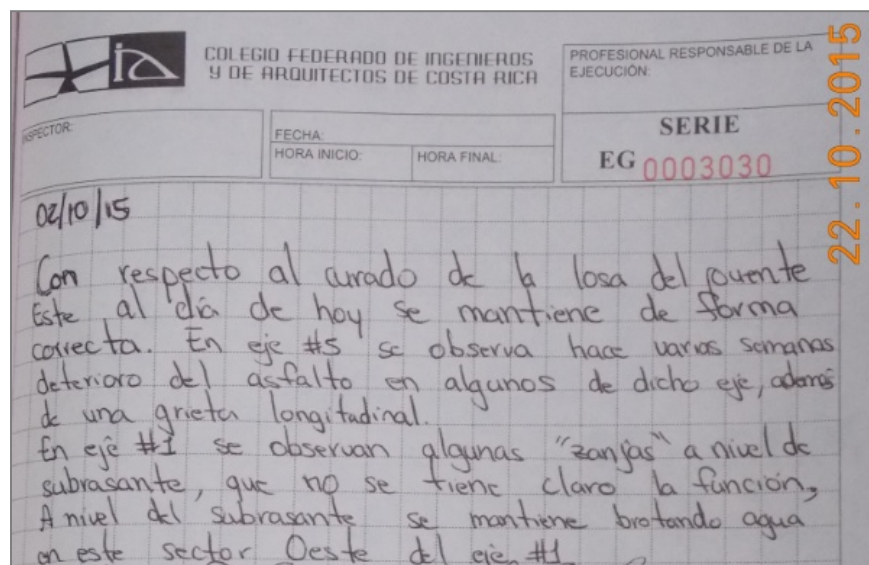 COLEGIO FEDERADO DE INGENIEROS
Y DE ARQUITECTOS DE COSTA RICA
PROFESIONAL RESPONSABLE DE LA
EJECUCIÓN:
INSPECTOR:
FECHA:
HORA INICIO:
HORA FINAL:
SERIE
EG 0003030
22.10.2015
02/10/15
Con respecto al curado de la losa del puente
Este al día de hoy se mantiene de forma
correcta. En eje #5 se observa hace varias semanas
deterioro del asfalto en algunos de dicho eje, además
de una grieta longitudinal.
En eje #1 se observan algunas "zanjas" a nivel de
subrasante, que no se tiene claro la función,
A nivel del subrasante se mantiene brotando agua
en este sector Oeste del eje #1